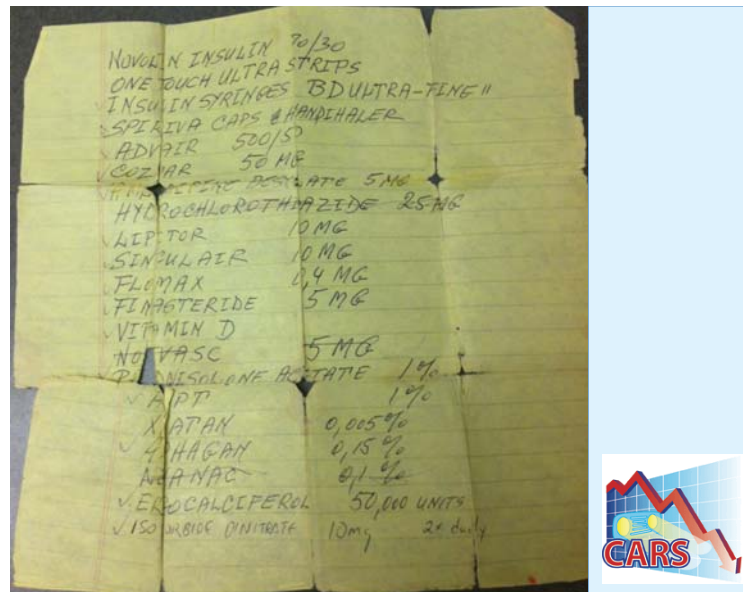 NOVOLIN INSULIN 70/30
ONE TOUCH ULTRA STRIPS
✓ INSULIN SYRINGES BD ULTRA-FINE II
✓ SPIRIVA CAPS & HANDIHALER
✓ ADVAIR 500/50
✓ COZAAR 50 MG
AMLODIPINE BESYLATE 5 MG
HYDROCHLOROTHIAZIDE 25 MG
✓ LIPITOR 10 MG
✓ SINGULAIR 10 MG
✓ FLOMAX 0,4 MG
✓ FINASTERIDE 5 MG
✓ VITAMIN D
NORVASC 5 MG
✓ PREDNISOLONE ACETATE 1%
✓ 1%
0,005%
✓ 0,15%
0,1%
✓ ERGOCALCIFEROL 50,000 UNITS
✓ ISOSORBIDE DINITRATE 10mg 2x daily
CARS